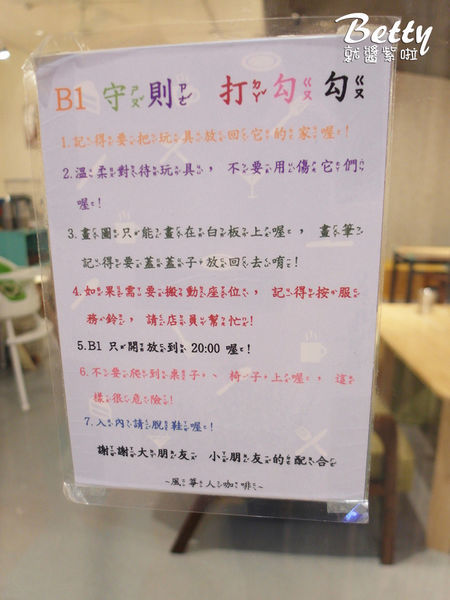 Betty
就醬紫啦
B1 守則 打勾勾
1.記得要把玩具放回它的家喔!
2.溫柔對待玩具, 不要用傷它們
喔!
3.畫圖只能畫在白板上喔, 畫筆
記得要蓋蓋子放回去唷!
4.如果需要搬動座位, 記得按服
務鈴, 請店員幫忙!
5.B1 只開放到 20:00 喔!
6.不要爬到桌子、椅子上喔, 這
樣很危險!
7.入內請脫鞋喔!
謝謝大朋友 小朋友的配合
~風箏人咖啡~